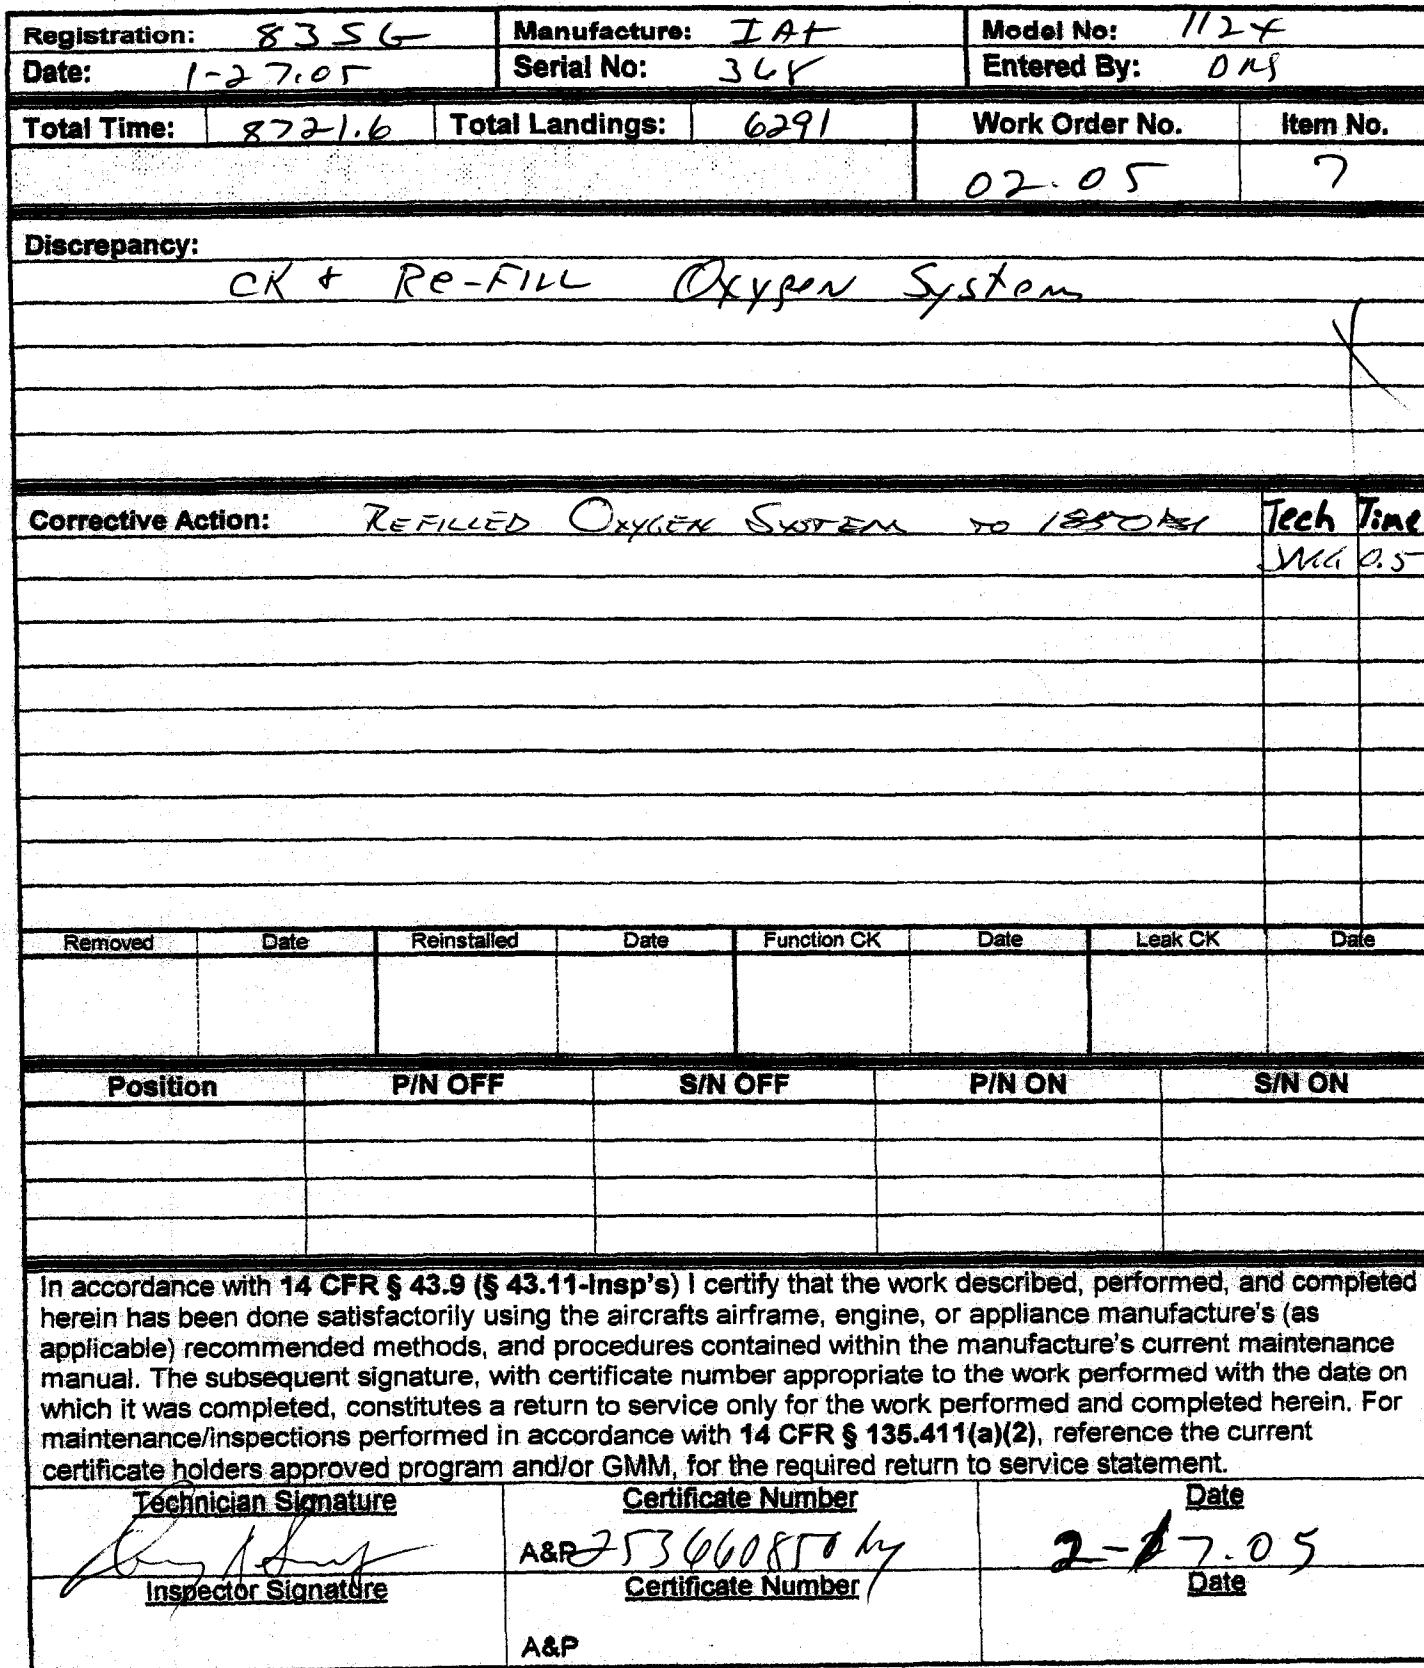 Registration: 83SG Manufacture: IAI Model No: 1124
Date: 1-27.05 Serial No: 368 Entered By:
Total Time: 8721.6 Total Landings: 6291 Work Order No. Item No.
02.05 7
Discrepancy:
CK & Re-FILL Oxygen System
Corrective Action: REFILLED OXYGEN SYSTEM TO 1850 PSI Tech Time
0.5
Removed Date Reinstalled Date Function CK Date Leak CK Date
Position P/N OFF S/N OFF P/N ON S/N ON
In accordance with 14 CFR § 43.9 (§ 43.11-Insp's) I certify that the work described, performed, and completed
herein has been done satisfactorily using the aircrafts airframe, engine, or appliance manufacture's (as
applicable) recommended methods, and procedures contained within the manufacture's current maintenance
manual. The subsequent signature, with certificate number appropriate to the work performed with the date on
which it was completed, constitutes a return to service only for the work performed and completed herein. For
maintenance/inspections performed in accordance with 14 CFR § 135.411(a)(2), reference the current
certificate holders approved program and/or GMM, for the required return to service statement.
Technician Signature Certificate Number Date
A&P 253660850 2-7.05
Inspector Signature Certificate Number Date
A&P